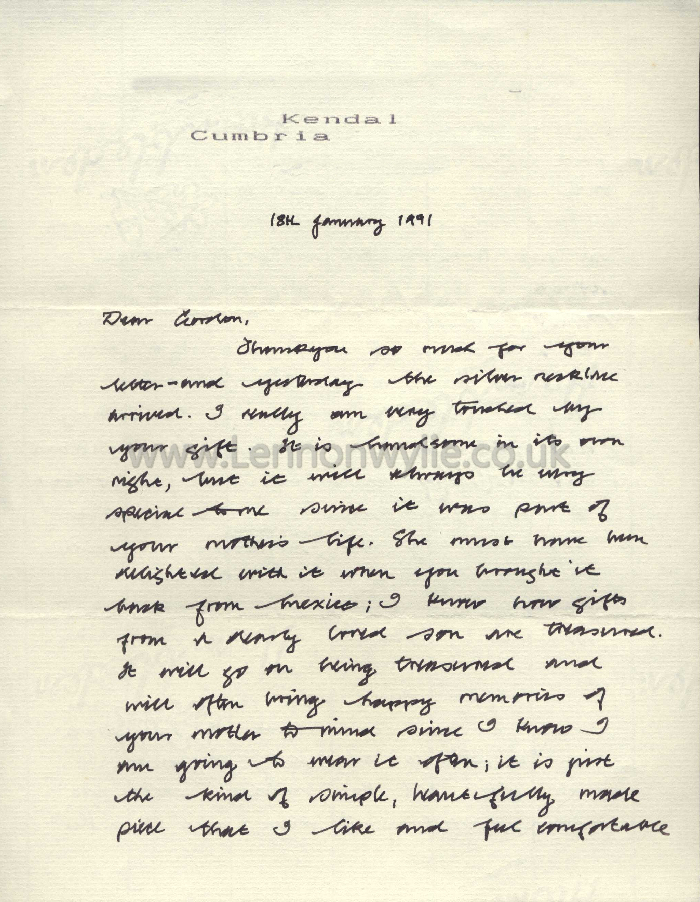 Kendal
Cumbria
18th January 1991
Dear Gordon,
Thankyou so much for your
letter - and yesterday the silver necklace
arrived. I really am very touched by
your gift. It is handsome in its own
www.Lennonwylie.co.uk
right, but it will always be very
special to me since it was part of
your mother's life. She must have been
delighted with it when you brought it
back from Mexico; I know how gifts
from a dearly loved son are treasured.
It will go on being treasured and
will often bring happy memories of
your mother to mind since I know I
am going to wear it often; it is just
the kind of simple, beautifully made
piece that I like and feel comfortable